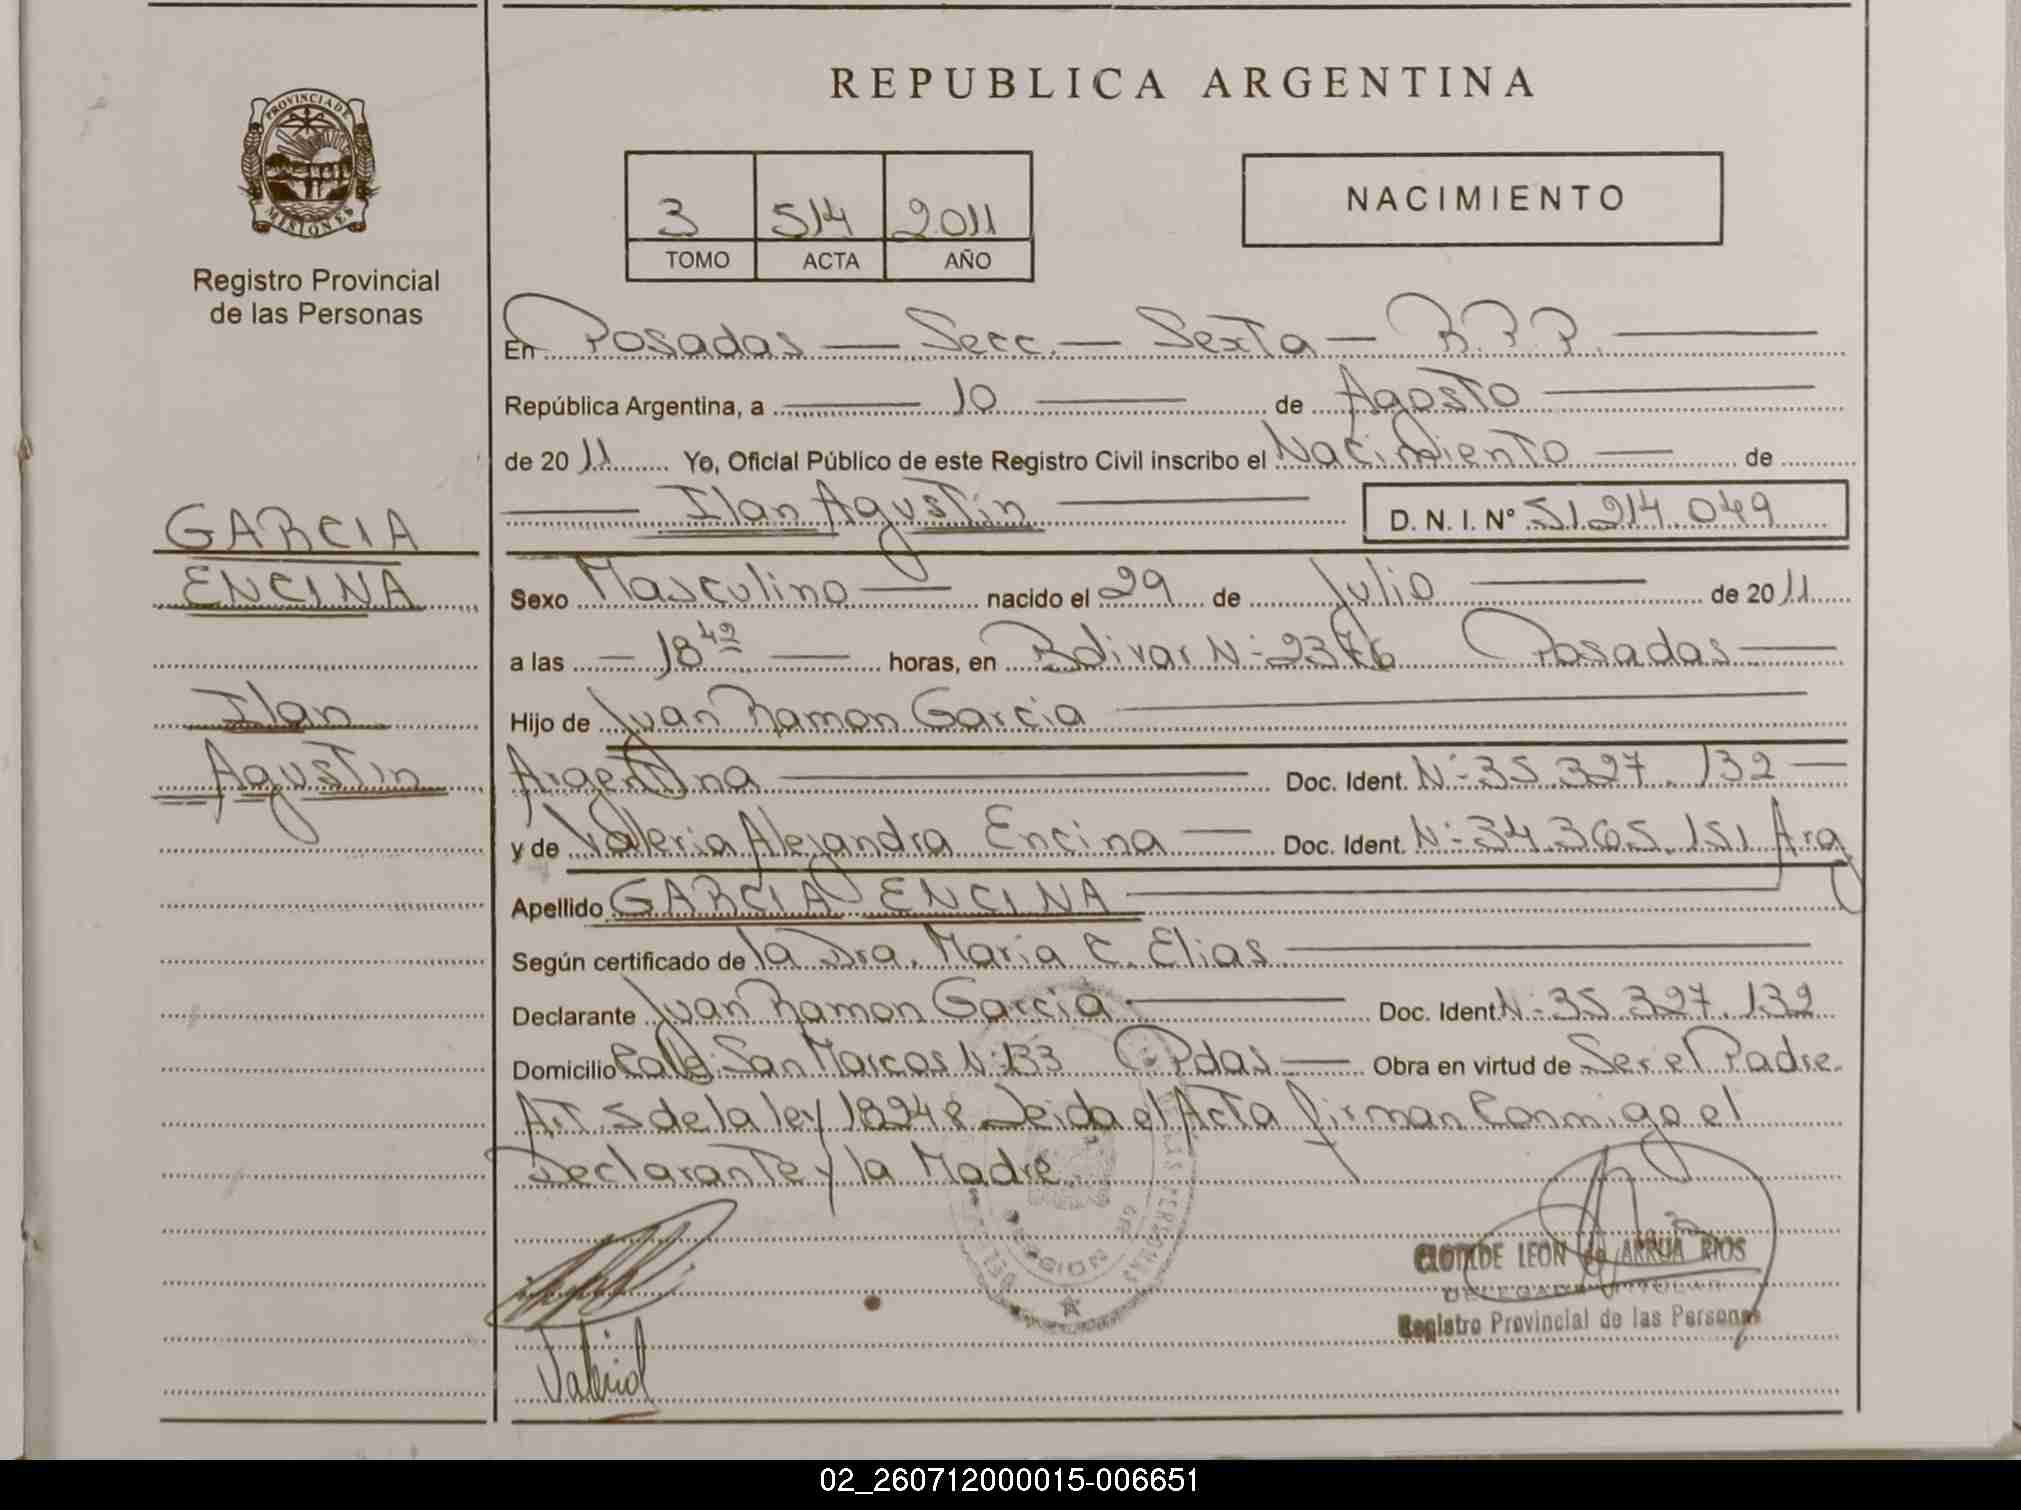 PROVINCIA DE
MISIONES
Registro Provincial
de las Personas
GARCIA
ENCINA
Ilan
Agustin
REPUBLICA ARGENTINA
3 514 2011
TOMO ACTA AÑO
NACIMIENTO
En Posadas — Secc. — Sexta — R.P.P.
República Argentina, a 10 de Agosto
de 20 11 Yo, Oficial Público de este Registro Civil inscribo el Nacimiento de
Ilan Agustin D. N. I. Nº 51.214.049
Sexo Masculino nacido el 29 de Julio de 20 11
a las 18 42 horas, en Bolivar Nº 2376 Posadas
Hijo de Juan Ramon Garcia
Argentina Doc. Ident. Nº 35.327.132
y de Valeria Alejandra Encina Doc. Ident. Nº 34.365.151 Arg
Apellido GARCIA ENCINA
Según certificado de la Dra. Maria C. Elias
Declarante Juan Ramon Garcia Doc. Ident. Nº 35.327.132
Domicilio Calle San Marcos Nº 133 Pdas Obra en virtud de Ser el Padre.
Art 5 de la ley 18248 Leida el Acta firman Conmigo el
Declarante y la Madre
CLOTILDE LEON de ARRUA RIOS
DELEGADA TITULAR
Registro Provincial de las Personas
Valeria
02_260712000015-006651